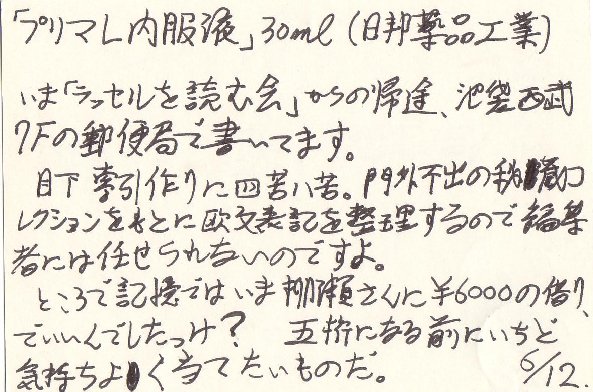 「プリマレ内服液」30ml(日邦薬品工業)
いま「ラッセルを読む会」からの帰途、池袋西武
7Fの郵便局で書いてます。
目下索引作りに四苦八苦。門外不出の秘蔵コ
レクションをもとに欧文表記を整理するので編集
者には任せられないのですよ。
ところで記憶ではいま柳瀬さんに¥6000の借り、
でいいんでしたっけ? 五桁になる前にいちど
気持ちよく当てたいものだ。 6/12.